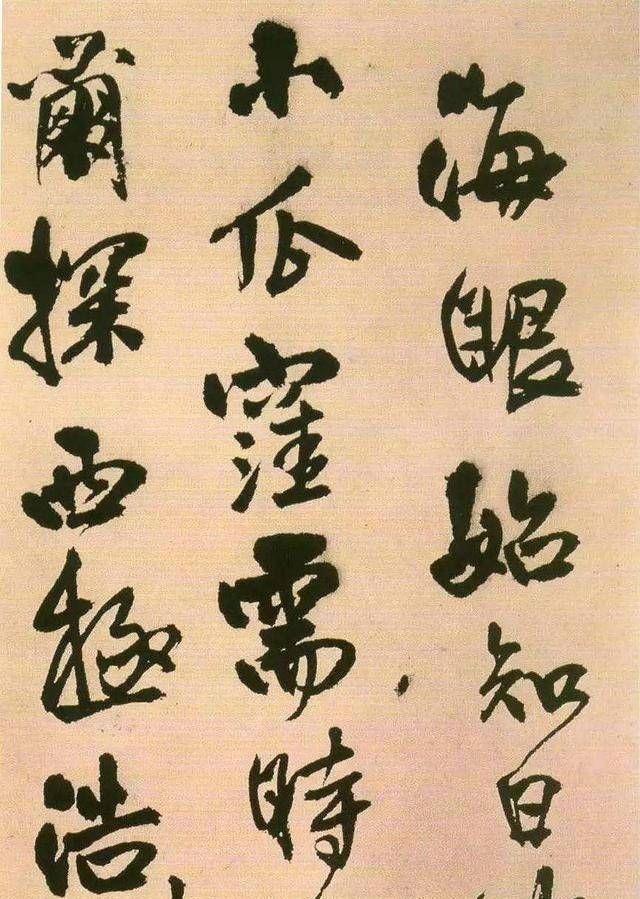 海眼始知日
小瓜窪需時
爾探西極浩